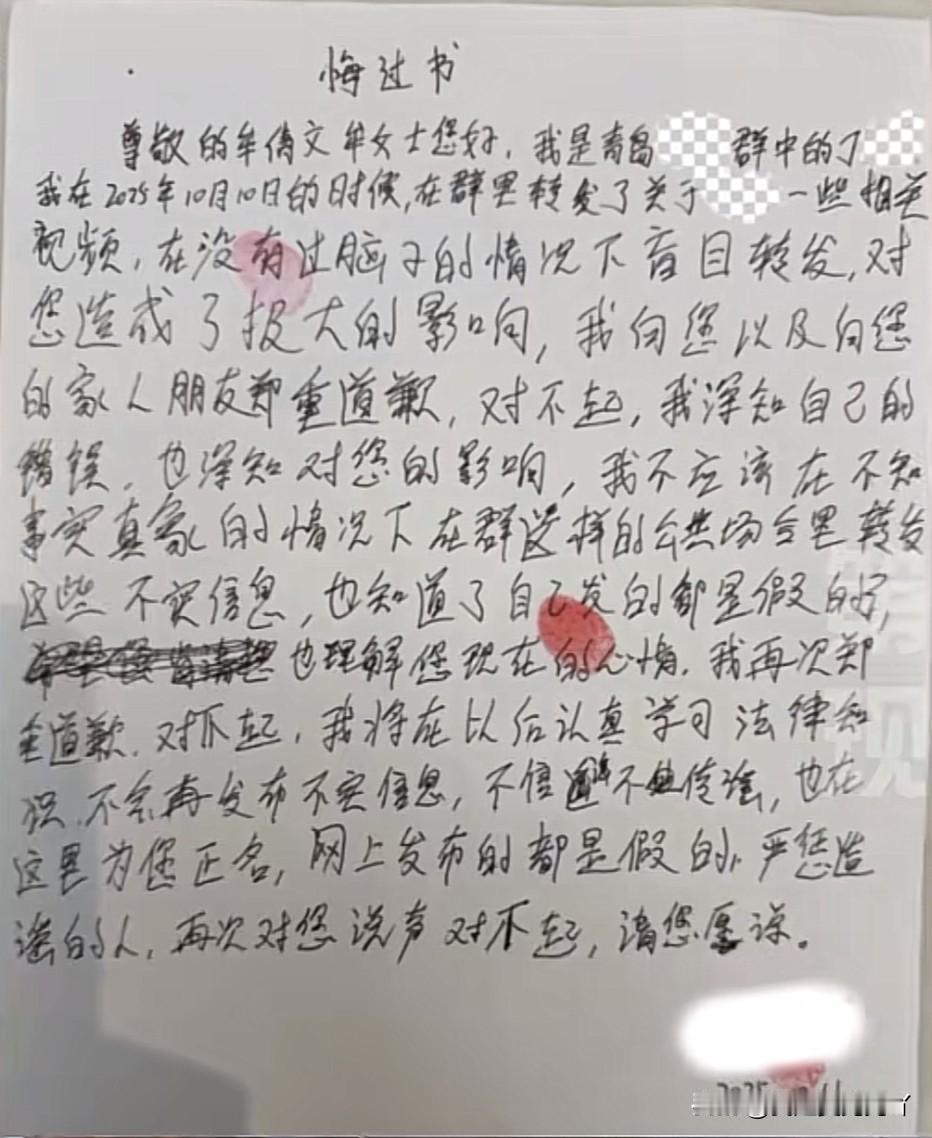 悔过书
尊敬的牟倩文牟女士您好，我是青岛 群中的丁
我在2025年10月10日的时候,在群里转发了关于 一些相关
视频，在没有过脑子的情况下盲目转发,对
您造成了极大的影响,我向您以及向您
的家人朋友郑重道歉，对不起，我深知自己的
错误，也深知对您的影响，我不应该在不知
事实真象的情况下在群这样的公共场合里转发
这些不实信息，也知道了自己发的都是假的,
也理解您现在的心情.我再次郑
重道歉.对不起，我将在以后认真学习法律知
识.不会再发布不实信息，不信谣不传谣，也在
这里为您正名，网上发布的都是假的，严惩造
谣的人，再次对您说声对不起，请您原谅。
2025